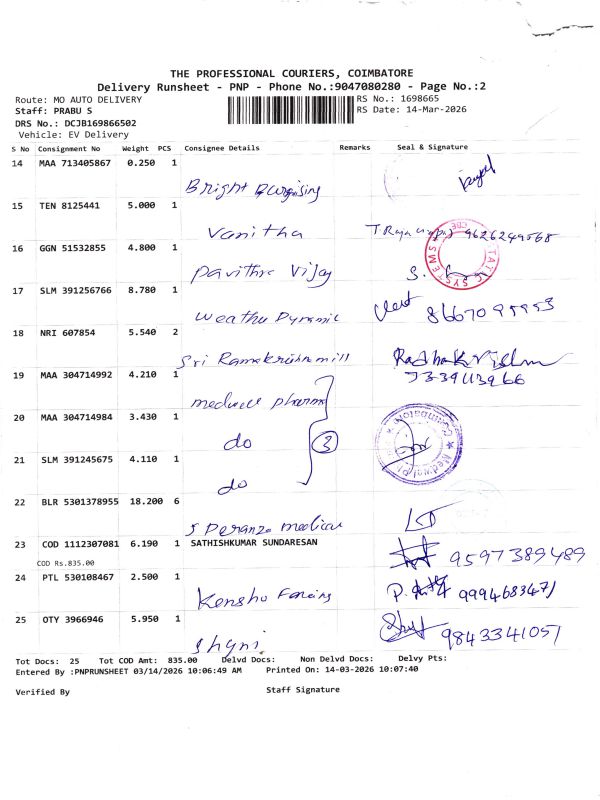 THE PROFESSIONAL COURIERS, COIMBATORE
Delivery Runsheet - PNP - Phone No.:9047080280 - Page No.:2
Route: MO AUTO DELIVERY RS No.: 1698665
Staff: PRABU S RS Date: 14-Mar-2026
DRS No.: DCJB169866502
Vehicle: EV Delivery
S No Consignment No Weight PCS Consignee Details Remarks Seal & Signature
14 MAA 713405867 0.250 1
Bright
15 TEN 8125441 5.000 1
Vanitha 9626249568
16 GGN 51532855 4.800 1
Pavithra Vijay S.
SYSTEMS
17 SLM 391256766 8.780 1
Dynamic 8667095953
18 NRI 607854 5.540 2
Sri Ramakrishna mill Radhakrishnan
19 MAA 304714992 4.210 1
pharma
20 MAA 304714984 3.430 1
do 3
21 SLM 391245675 4.110 1
do
22 BLR 5301378955 18.200 6
Medical
23 COD 1112307081 6.190 1 SATHISHKUMAR SUNDARESAN
COD Rs.835.00 9597389489
24 PTL 530108467 2.500 1
Kensho 9994683471
25 OTY 3966946 5.950 1
Shyni 9843341051
Tot Docs: 25 Tot COD Amt: 835.00 Delvd Docs: Non Delvd Docs: Delvy Pts:
Entered By :PNPRUNSHEET 03/14/2026 10:06:49 AM Printed On: 14-03-2026 10:07:40
Verified By Staff Signature